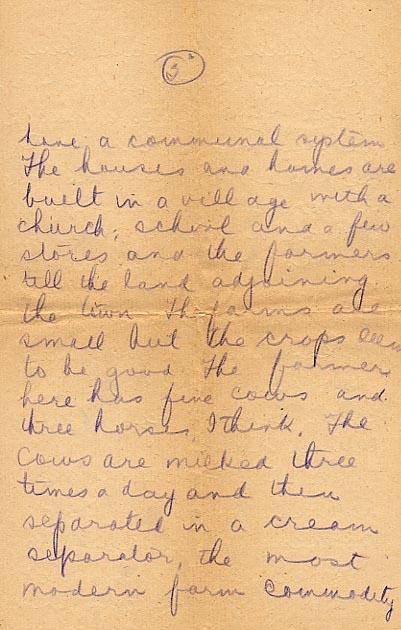 3
have a communal system
The houses and homes are
built in a village with a
church, school and a few
stores and the farmers
till the land adjoining
the town The farms are
small but the crops seem
to be good The farmer
here has five cows and
three horses, I think. The
cows are milked three
times a day and then
separated in a cream
separator, the most
modern farm commodity